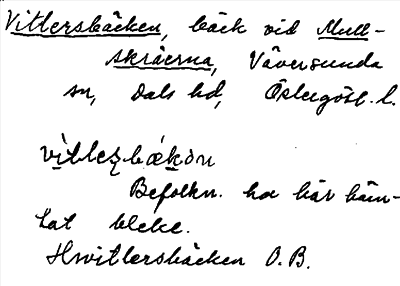 Vittersbäcken, bäck vid Mull-
skräerna, Väversunda
sn, Dals hd, Östergötl. l.
vìtleʂbǽkɔn
Befolkn. har här häm-
tat bleke.
Hwitlersbäcken O.B.